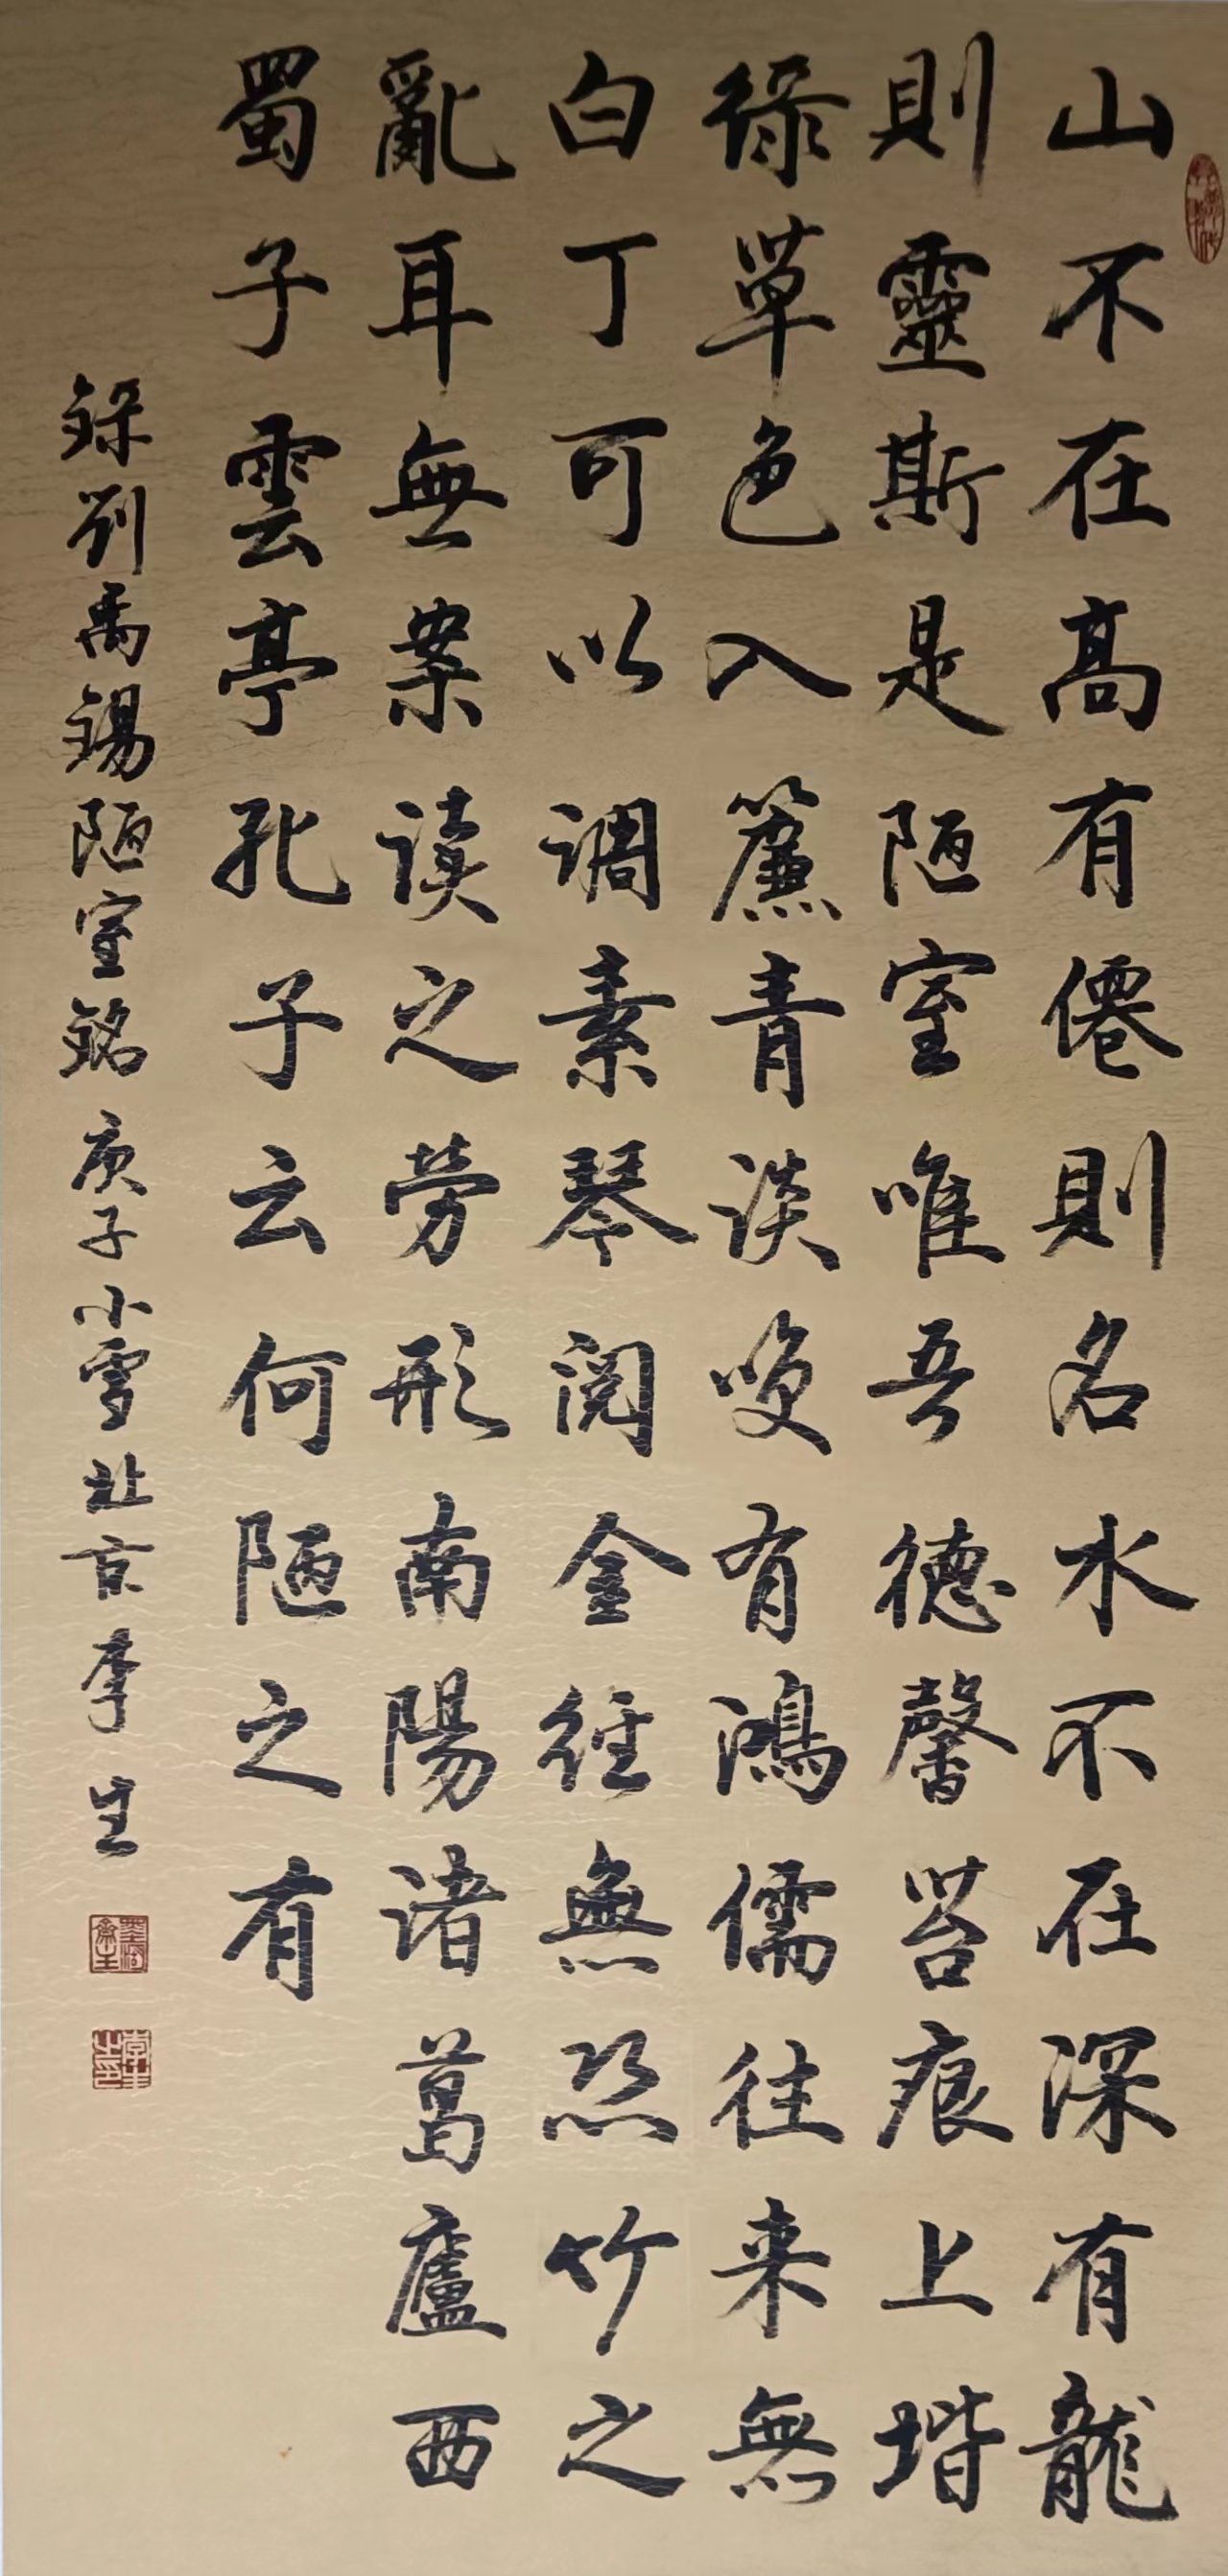 山不在高有僊則名水不在深有龍
則靈斯是陋室唯吾德馨苔痕上堦
緑草色入簾青談咲有鴻儒往来無
白丁可以調素琴閲金經無丝竹之
亂耳無案读之劳形南陽诸葛廬西
蜀子雲亭孔子云何陋之有
録劉禹錫陋室銘庚子小雪北京李生